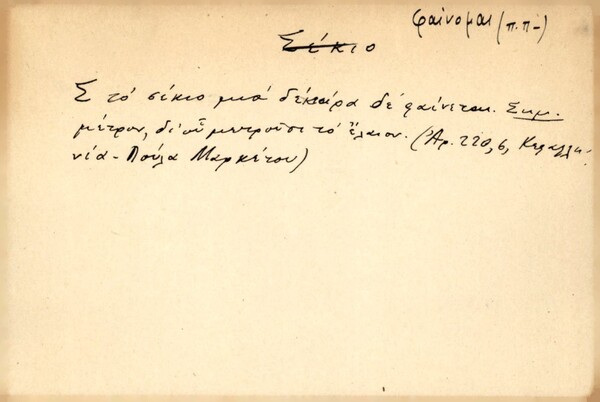 φαίνομαι (π.π-)
Σέκιο
Σ τό σέκιο μιά δεκάρα δέ φαίνεται. Σημ.
μέτρον, δι' οὗ μετροῦσι τό ἔλαιον. (Ἀρ. 220, 6, Κεφαλλη-
νία - Πούλα Μαρκέτου)